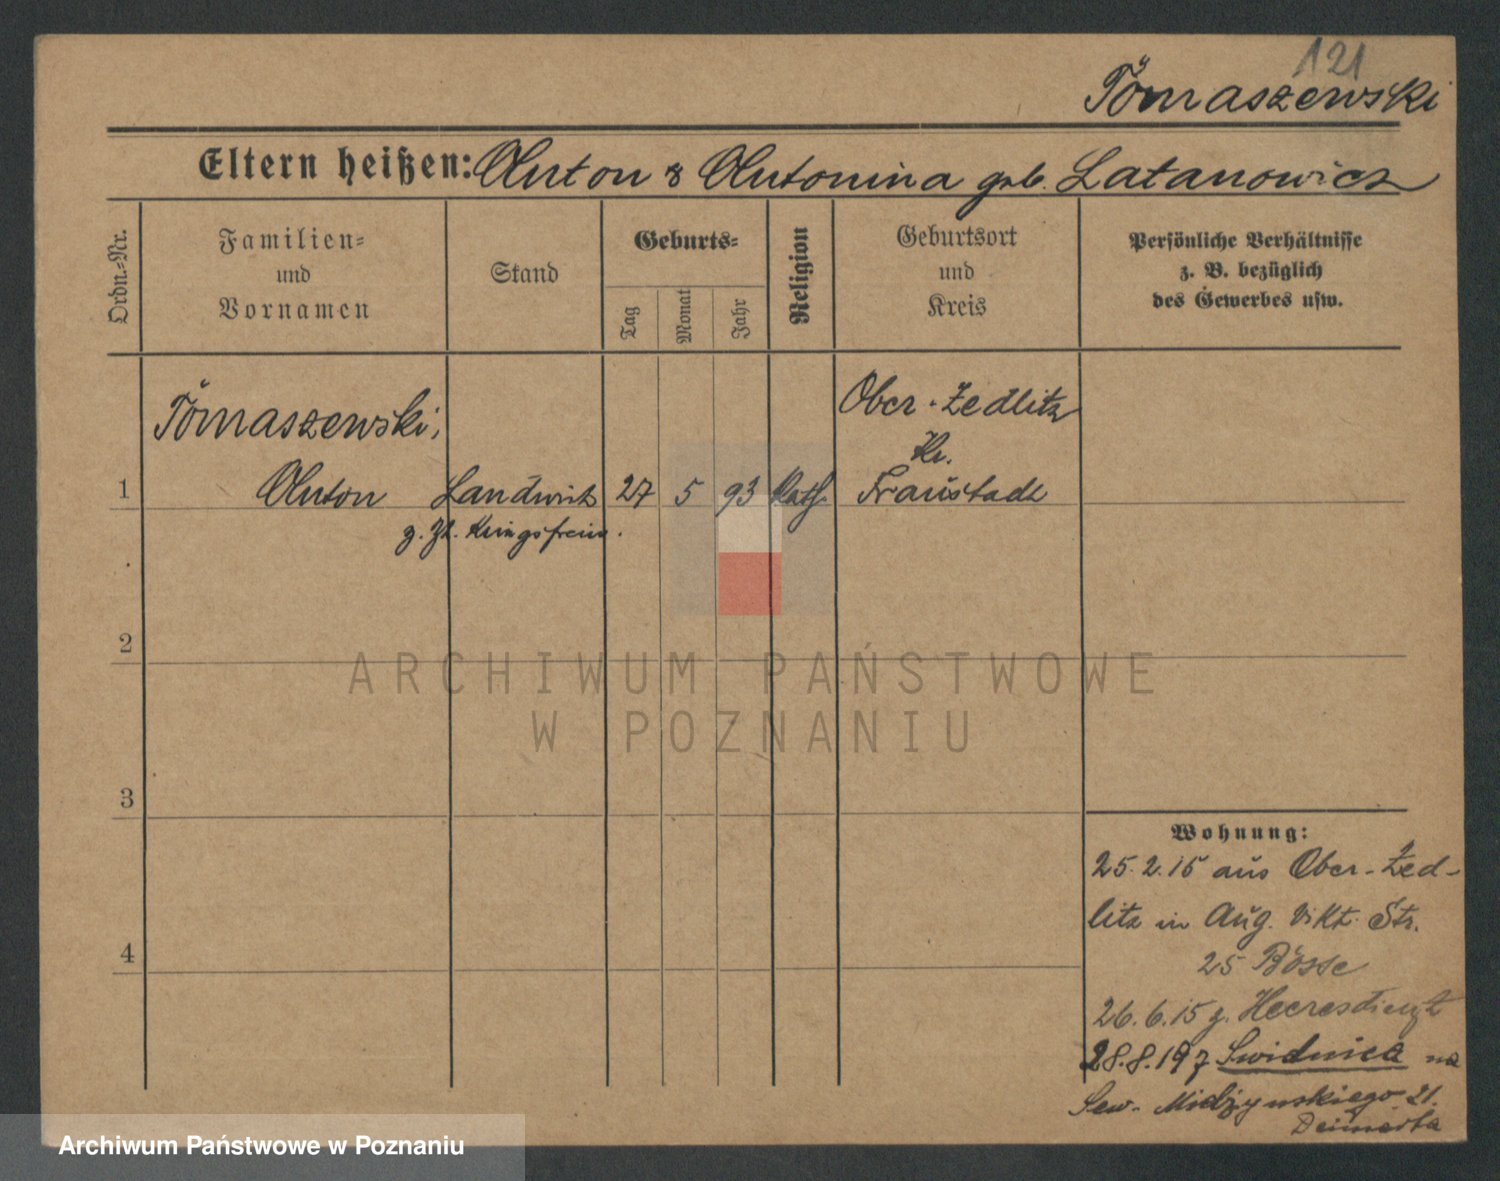 121
Tomaszewski
Eltern heißen: Anton & Antonina geb. Latanowicz
Ordn.-Nr.
Familien-
und
Vornamen
Stand
Geburts-
Tag
Monat
Jahr
Religion
Geburtsort
und
Kreis
Persönliche Verhältnisse
z. B. bezüglich
des Gewerbes usw.
Tomaszewski,
Ober-Zedlitz
Kr.
1 Anton Landwirt 27 5 93 Kath. Fraustadt
z. Zt.
2
3
4
Wohnung:
25.2.15 aus Ober-Zed-
litz in Aug. Vikt. Str.
25 Bosse
26.6.15 z. Heeresdienst
28.8.19 z Swidnica na
Miedzynskiego 21.
ARCHIWUM PAŃSTWOWE
W POZNANIU
Archiwum Państwowe w Poznaniu